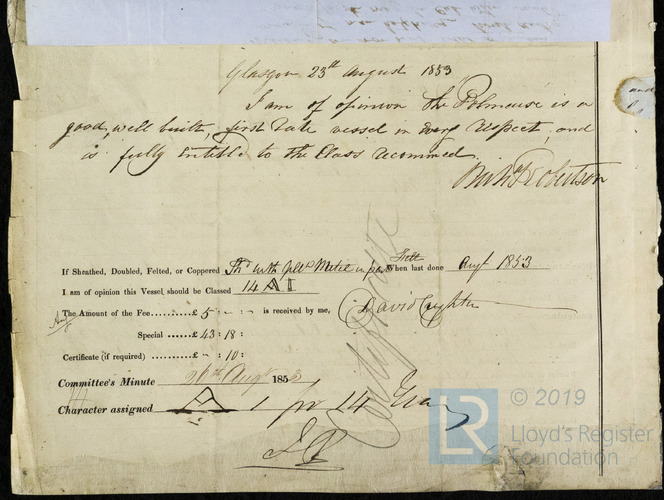 Glasgow 23th August 1853
I am of opinion the Polmeuse is a
good, well built, first rate vessel in every respect, and
is fully entitled to the Class recommed.
Robertson
If Sheathed, Doubled, Felted, or Coppered with Yellow Metal Felt When last done Augt 1853
I am of opinion this Vessel should be Classed 14 A 1
The Amount of the Fee £ 5 " - " - is received by me, David Crighton
Special £ 43 : 18 :
Certificate (if required) £ - : 10 :
Committee's Minute 26th Augt 1853
Character assigned A 1 for 14 Years
Certificate
© 2019
LR Lloyd's Register
Foundation